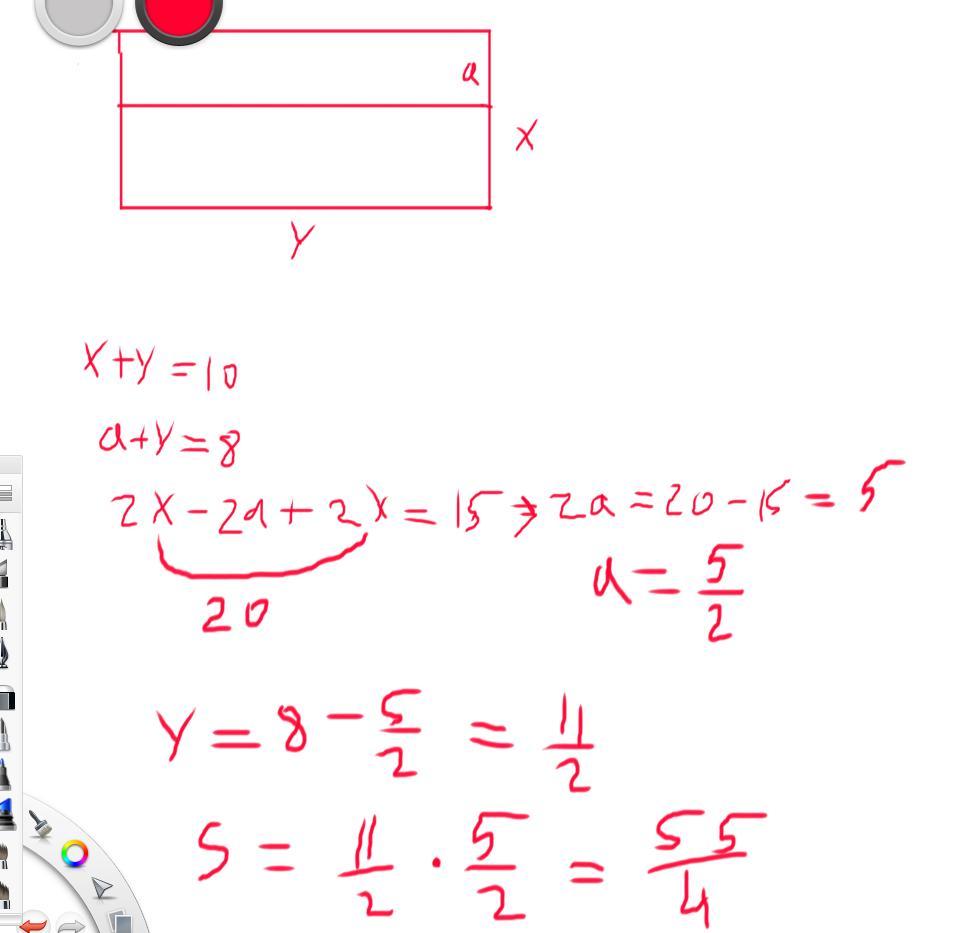 a
x
y
x+y=10
a+y=8
2x-2a+2x=15⇒2a=20-15=5
20
a=5/2
y=8-5/2=11/2
S=11/2·5/2=55/4